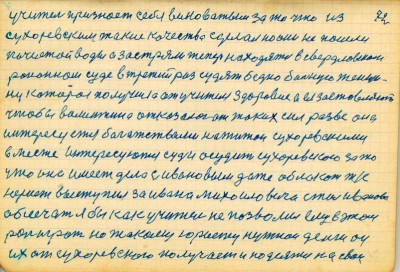 72
учител признает себя виноватым за то что из
сухоревским такие качество сделал но они не пошли
по чистой воды а застряли теперь находяти в свердловском
районном суде в третий раз судят бедно больную женщи-
ну которая получила от учителя здоровие а ей заставляют
чтобы валентина отказалась от таких сил разве она
интересуется богатствами нажитой сухоревскими
вместе интересуются суди осудит сухоревского за то
что она имеет дело с ивановым даже облокат ж/к
нехочет выступил за ивана михоиловича стали иванова
облечат а бы как учител не позволил ему в этой
но такому юристу нужной денги он
их от сухоревского получает и надеяти на свои